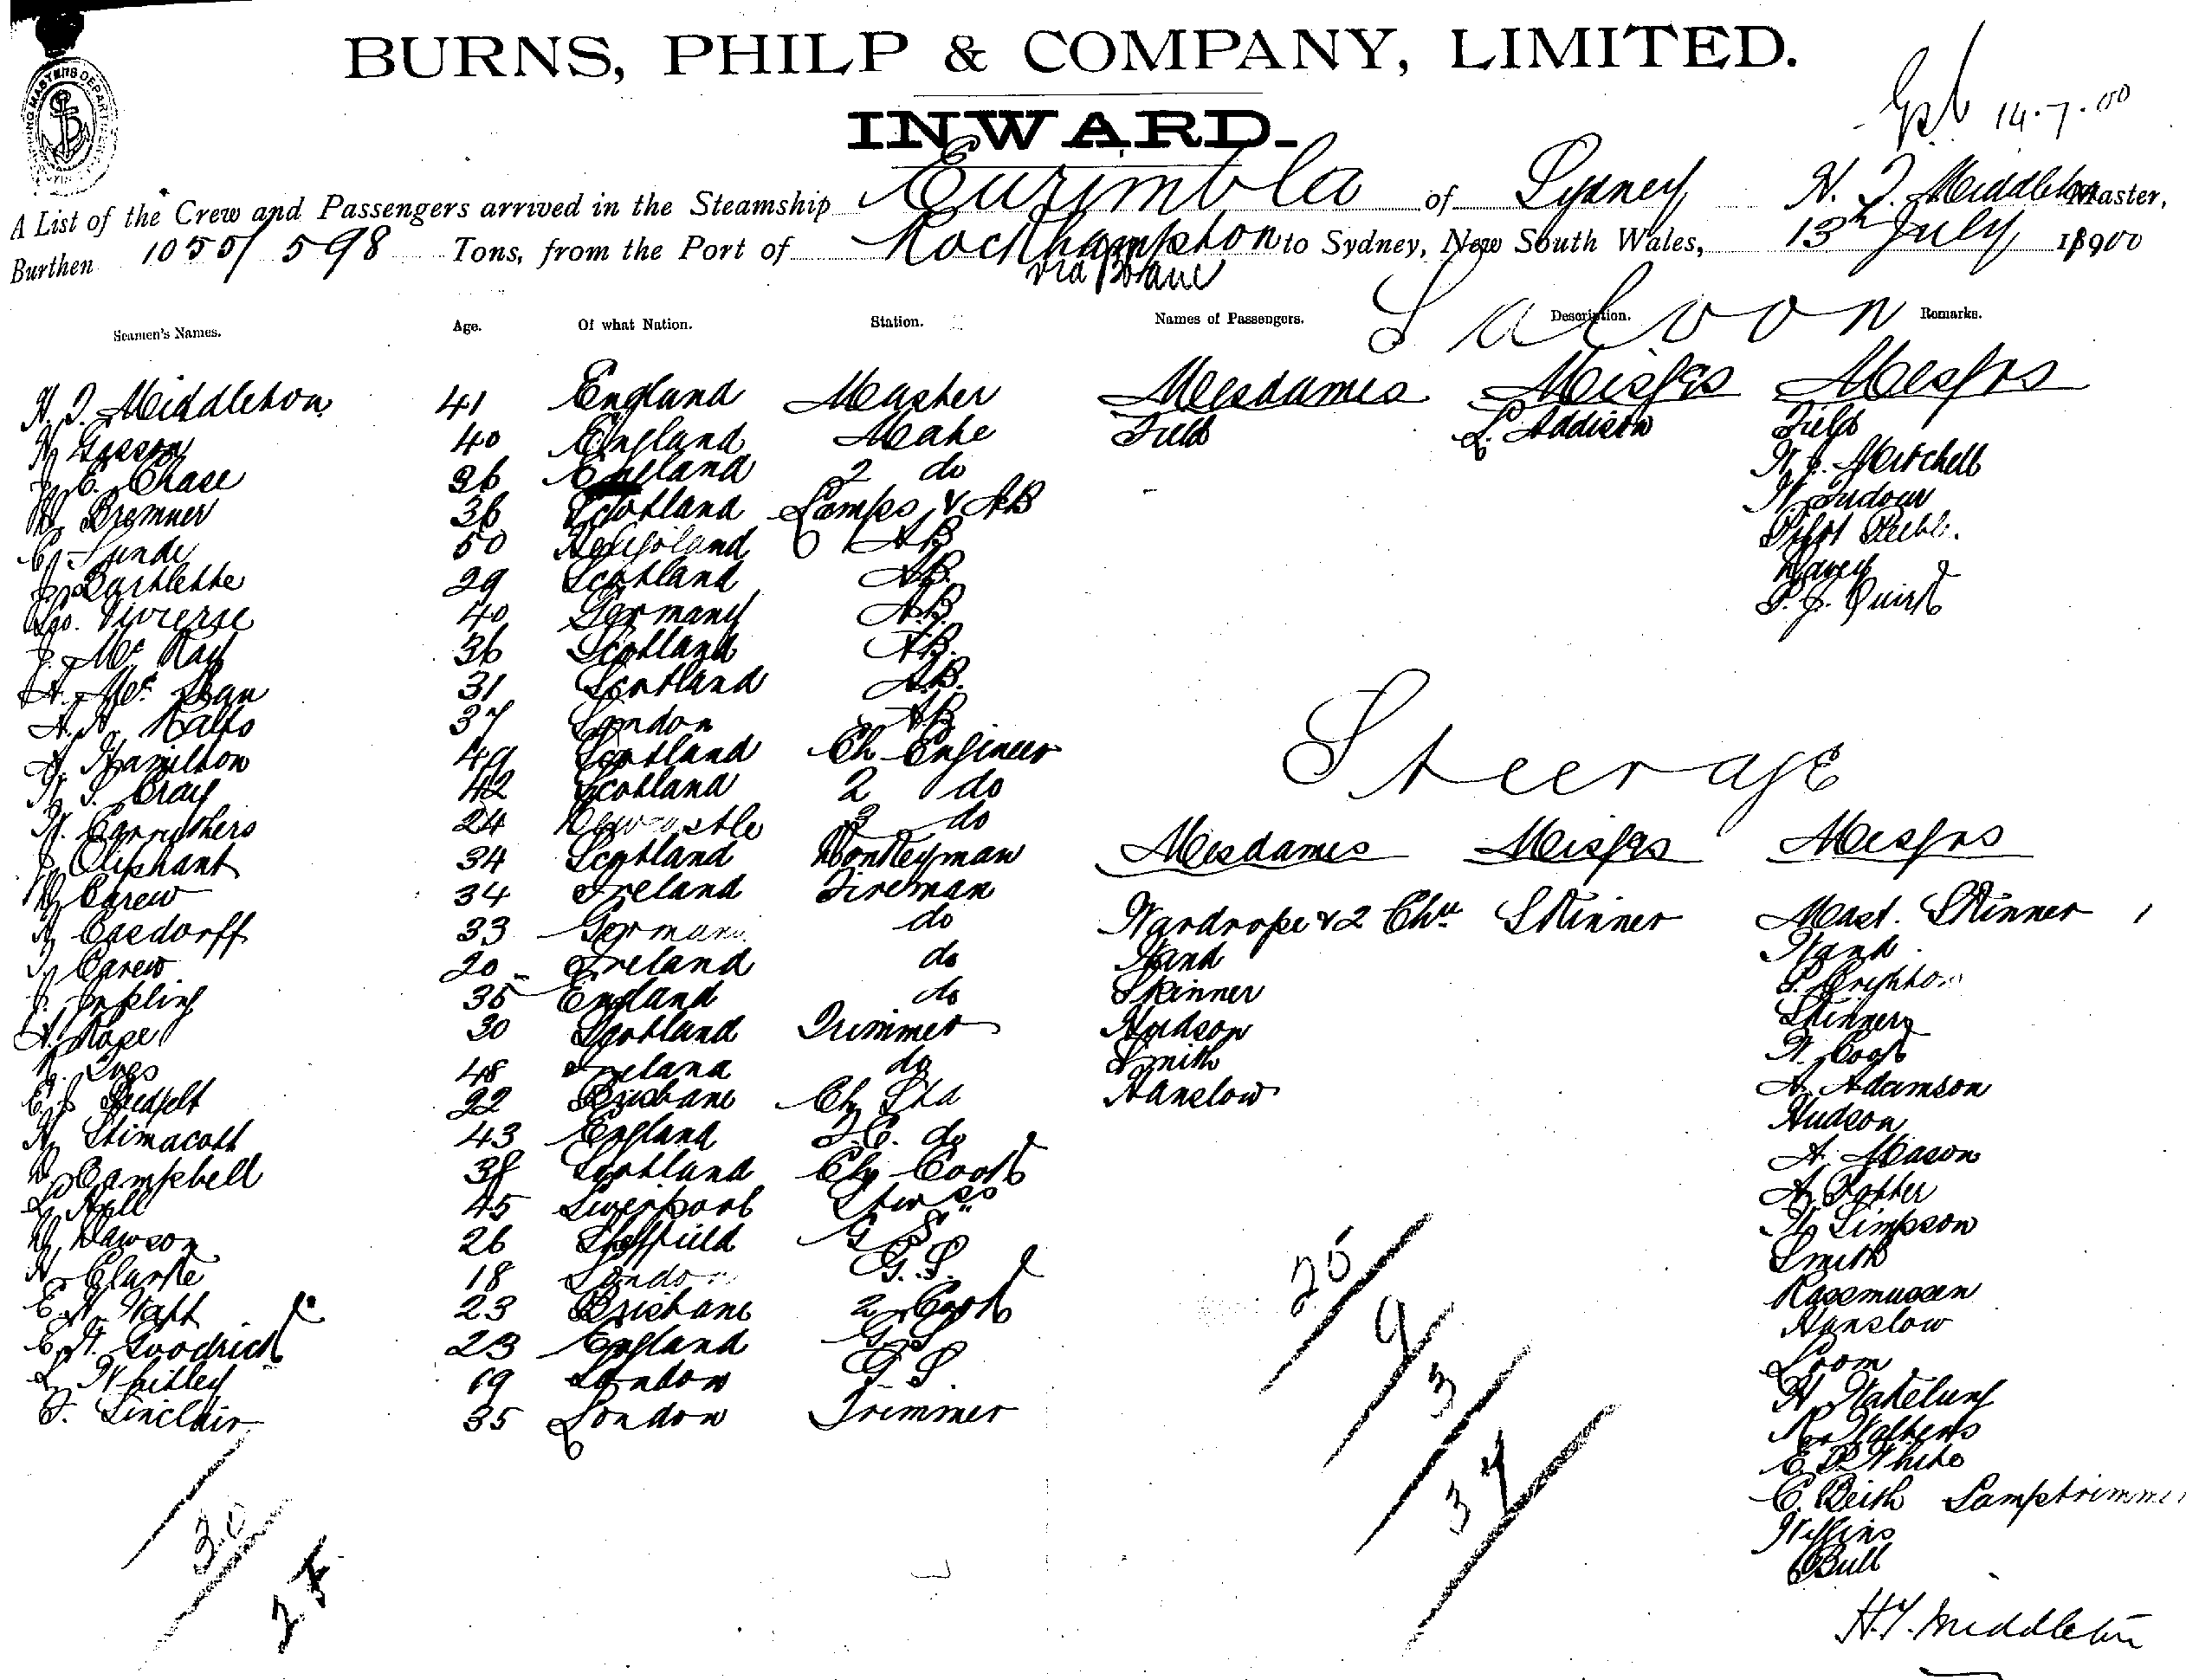 BURNS, PHILP & COMPANY, LIMITED.
INWARD.
14.7.00
A List of the Crew and Passengers arrived in the Steamship Eurimbla of Sydney H. T. Middleton Master,
Burthen 1055/598 Tons, from the Port of Rockhampton to Sydney, New South Wales, 13th July 1900
via B'bane
Saloon
Seamen's Names. Age. Of what Nation. Station. Names of Passengers. Description. Remarks.
H. T. Middleton 41 England Master Mesdames Misses Messrs
H Gasson 40 England Mate Field L. Addison Field
J. E. Chase 36 England 2 do W. J. Mitchell
W Bremner 36 Scotland Lamps & AB W Tudour
C. Sunde 50 Heligoland AB Pilot
J. Bartlette 29 Scotland AB. Davey
Geo. Vivierse 40 Germany A.B. P. J. Quirk
J. McKay 36 Scotland AB.
A. Mc Lean 31 Scotland A.B.
A. H. Ralfs 37 London AB
A. Hamilton 49 Scotland Ch Engineer
Steerage
W. S. Gray 42 Scotland 2 do
W. Carruthers 24 Newcastle 3 do
J. Oliphant 34 Scotland Donkeyman Mesdames Misses Messrs
W Carew 34 Ireland Fireman
H Cosdorff 33 German do Wardrope & 2 Chn Skinner Mast. Skinner 1
T. Carew 20 Ireland do Hand Hand
J. Inpling 35 England do Skinner P. Crighton
A. Rose 30 Scotland Trimmer Hudson Skinner
48 Ireland do Smith W. Cook
E. J. 22 Brisbane Ch Std Hanslow A. Adamson
H Stimacott 43 England F.C. do Hudson
D Campbell 38 Scotland Ch Cook A. Mason
L. Hall 45 Liverpool Stwess A. Potter
W Dawson 26 Sheffield G S W Simpson
H Clarke 18 London G.S. Smith
E. H. Watt 23 Brisbane 2 Cook Rassmussen
C. H. Goodrick 23 England G S Hanslow
L Whitley 19 London G. S. Loom
J. Sinclair 35 London Trimmer H Wakelung
R. Watkins
E. P. White
C. Beith Lamptrimmer
Willins
Bull
20
9
3
37
30
H.T. Middleton